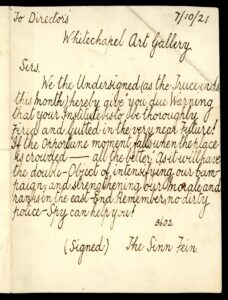 To Directors 7/10/21
Whitechapel Art Gallery
Sirs.
We the Undersigned (as the Truce ends
this month) hereby give you due Warning
that your Institute is to be thoroughly
Fired and Gutted in the very near future!
If the Opportune moment falls when the place
is crowded — all the better, as it will have
the double-Object of intensifying our Cam-
paign; and strengthening our Morale, and
ranks in the east-End. Remember, no dirty
police-Spy can help you!
(Signed) The Sinn Fein.